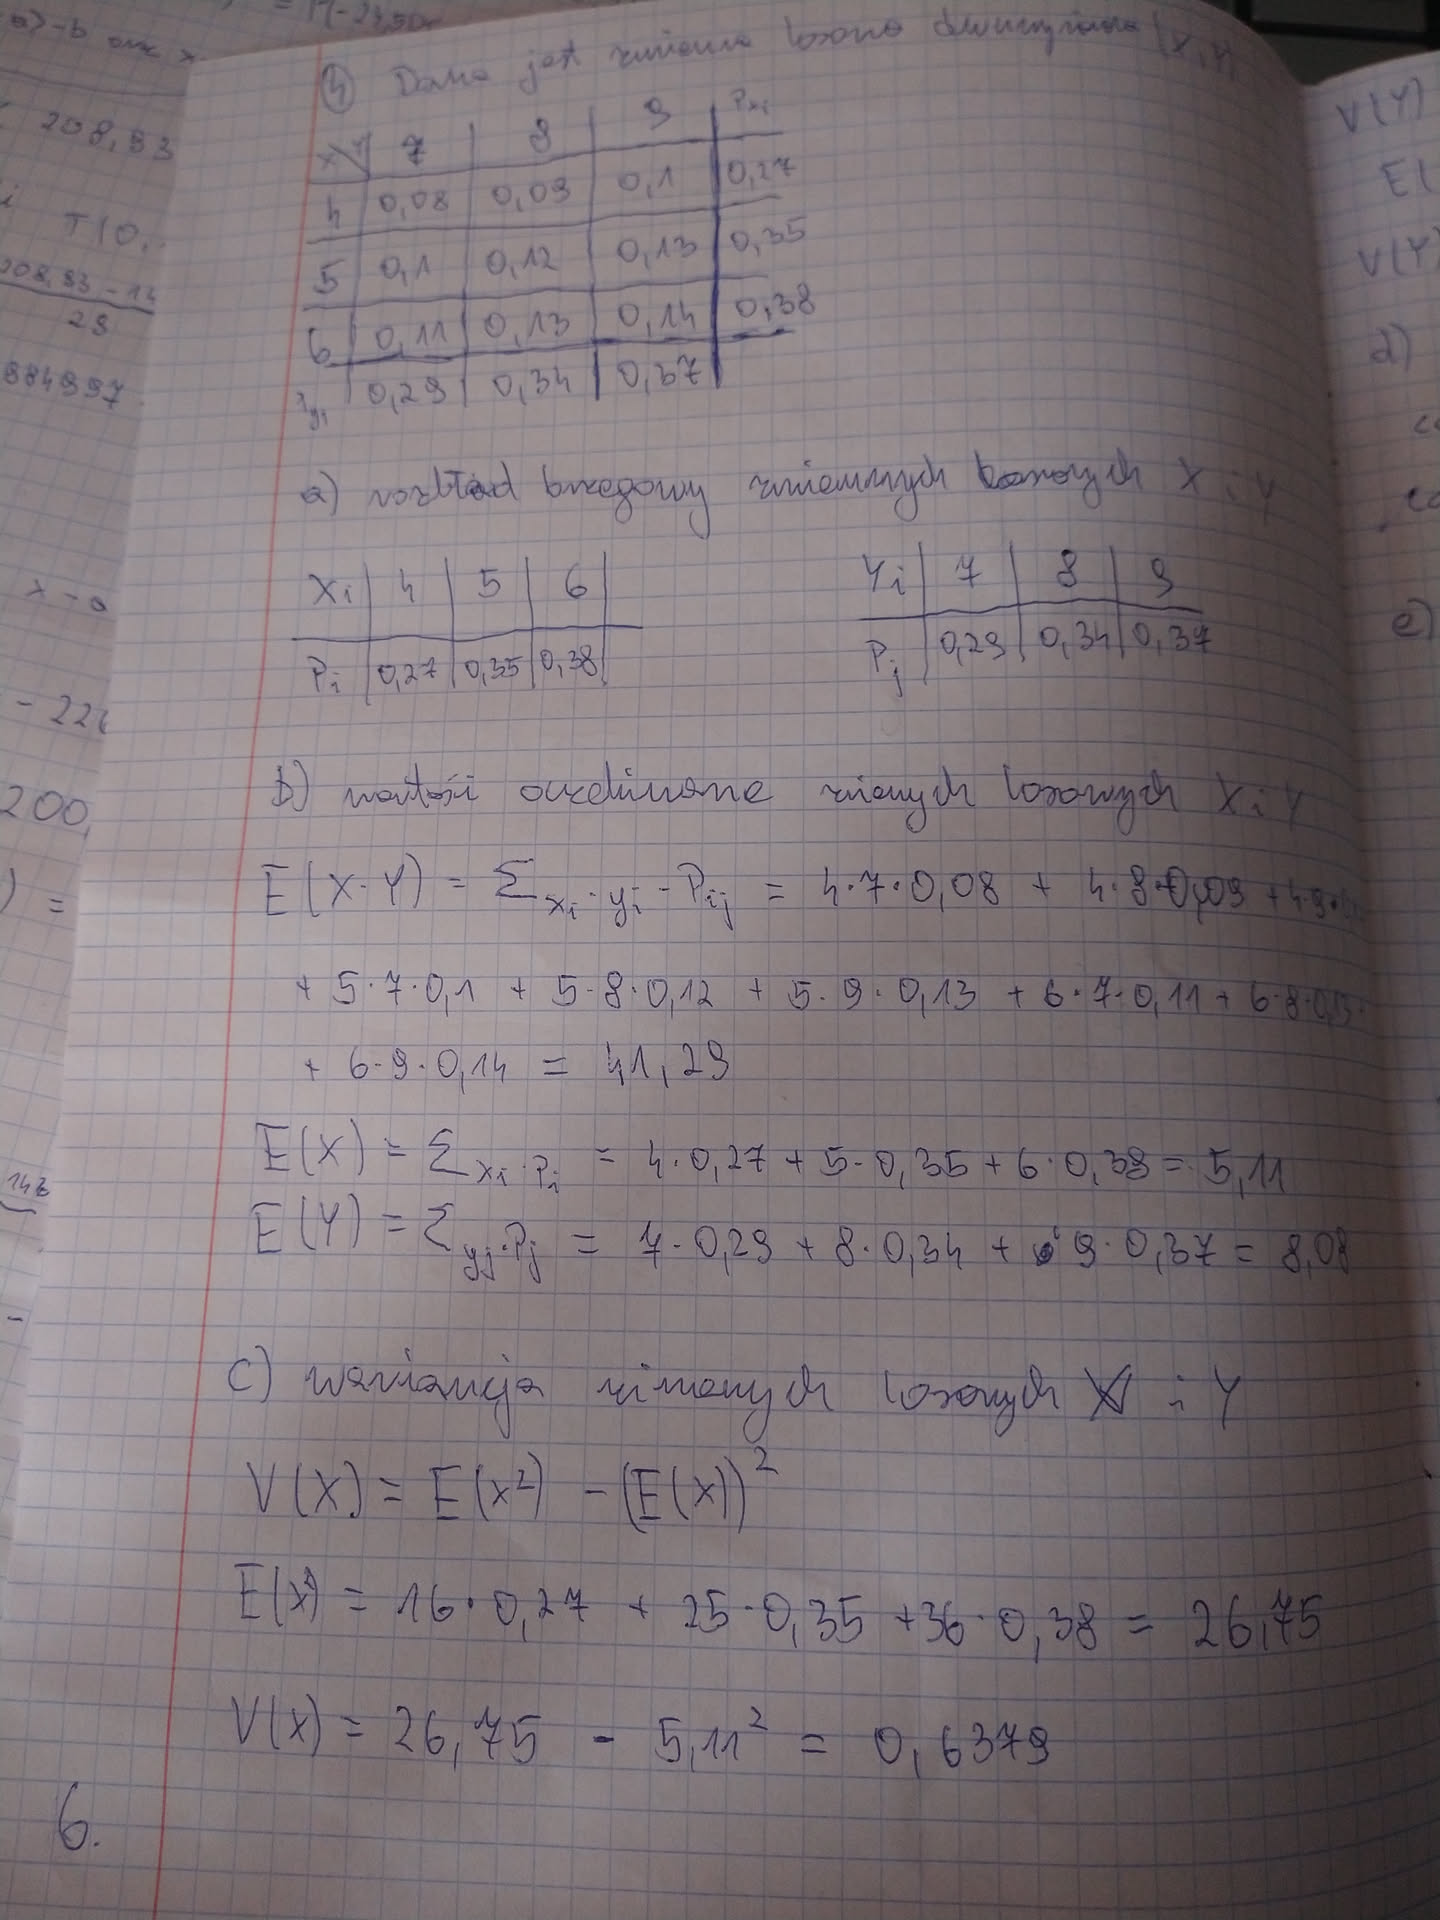 a) -b
208,93
T(0,
208,93 - 14
29
884997
x - a
- 220
200,
) =
142
-
6.
4) Dana jest zmienna losowa dwuwymiarowa (X, Y)
X\Y 7 8 9 Pxi
4 0,08 0,09 0,1 0,27
5 0,1 0,12 0,13 0,35
6 0,11 0,13 0,14 0,38
Pyj 0,29 0,34 0,37
a) rozkład brzegowy zmiennych losowych X i Y
Xi 4 5 6
Pi 0,27 0,35 0,38
Yi 7 8 9
Pj 0,29 0,34 0,37
b) wartości oczekiwane zmiennych losowych X i Y
E(X·Y) = Σ xi · yi · Pij = 4·7·0,08 + 4·8·0,09 + 4·9·
+ 5·7·0,1 + 5·8·0,12 + 5·9·0,13 + 6·7·0,11 + 6·8·0,13
+ 6·9·0,14 = 41,29
E(X) = Σ xi·Pi = 4·0,27 + 5·0,35 + 6·0,38 = 5,11
E(Y) = Σ yj·Pj = 7·0,29 + 8·0,34 + 9·0,37 = 8,08
c) wariancja zmiennych losowych X i Y
V(X) = E(x²) - (E(x))²
E(x²) = 16·0,27 + 25·0,35 + 36·0,38 = 26,75
V(x) = 26,75 - 5,11² = 0,6379
V(Y)
E(
V(Y)
d)
e)